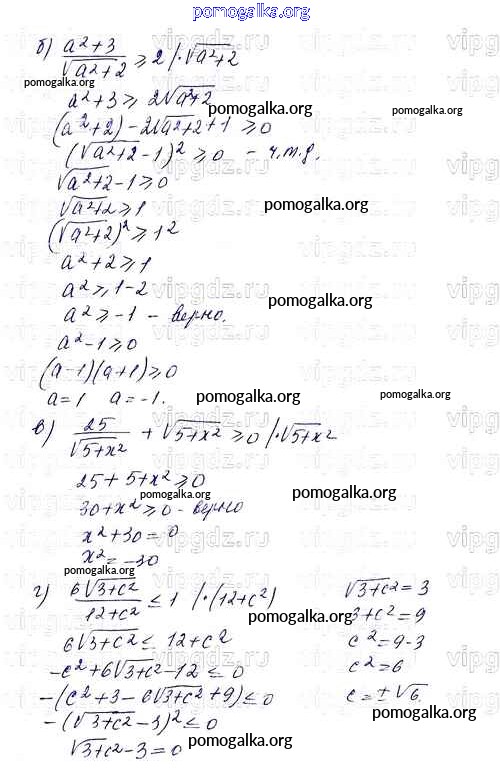 pomogalka.org
б) (a²+3)/√(a²+2) ⩾ 2 /·√(a²+2)
pomogalka.org
pomogalka.org
a²+3 ⩾ 2√(a²+2)
pomogalka.org
(a²+2) - 2√(a²+2) + 1 ⩾ 0
(√(a²+2) - 1)² ⩾ 0 - ч.т.д.
√(a²+2) - 1 ⩾ 0
√(a²+2) ⩾ 1
pomogalka.org
(√(a²+2))² ⩾ 1²
a²+2 ⩾ 1
a² ⩾ 1-2
pomogalka.org
a² ⩾ -1 - верно.
a²-1 ⩾ 0
(a-1)(a+1) ⩾ 0
a=1 a=-1.
pomogalka.org
pomogalka.org
в) 25/√(5+x²) + √(5+x²) ⩾ 0 /·√(5+x²)
pomogalka.org
25+5+x² ⩾ 0
pomogalka.org
pomogalka.org
30+x² ⩾ 0 - верно
x²+30=0
x²=-30
pomogalka.org
г) 6√(3+c²)/(12+c²) ≤ 1 /·(12+c²)
√(3+c²)=3
pomogalka.org
3+c²=9
6√(3+c²) ≤ 12+c²
c²=9-3
-c²+6√(3+c²)-12 ≤ 0
c²=6
-(c²+3-6√(3+c²)+9) ≤ 0
c=±√6.
-(√(3+c²)-3)² ≤ 0
pomogalka.org
√(3+c²)-3=0
pomogalka.org